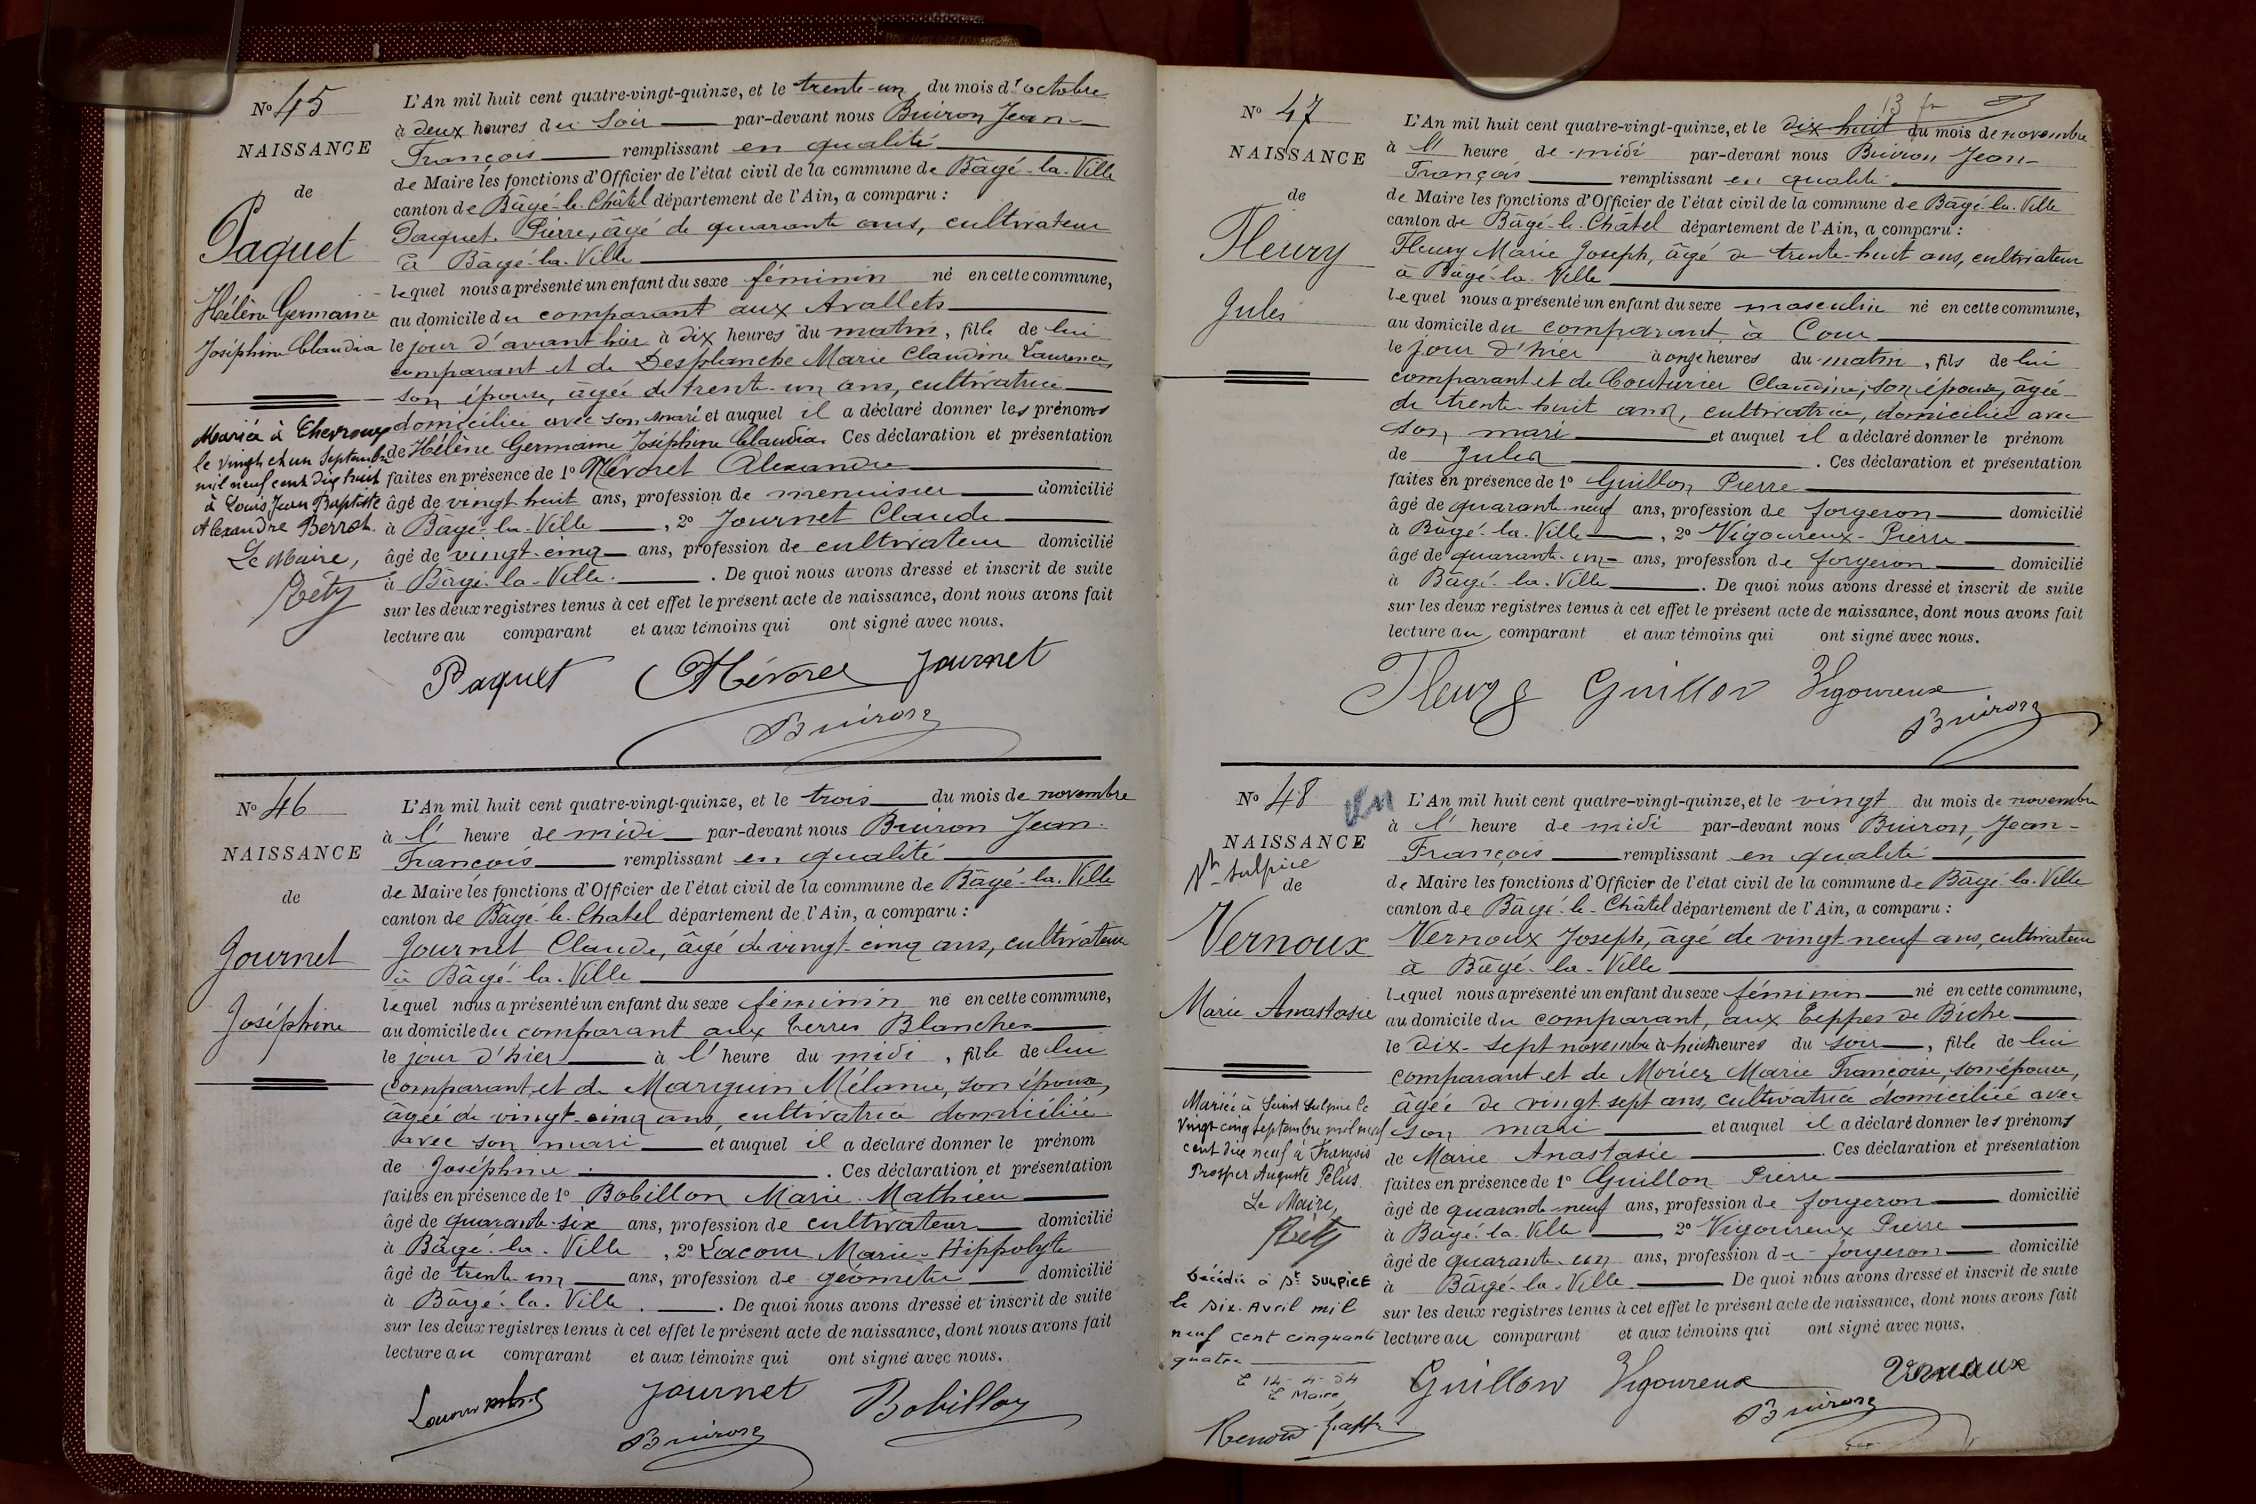 N° 45
NAISSANCE
de
Paquet
Hélène Germaine
Joséphine Claudia
Mariée à Chevroux
le vingt et un Septembre
mil neuf cent dix huit
à Louis Jean Baptiste
Alexandre Berrot.
Le Maire,
Réty
L'An mil huit cent quatre-vingt-quinze, et le trente-un du mois d'octobre
à deux heures du soir par-devant nous Buiron Jean-
François remplissant en qualité
de Maire les fonctions d'Officier de l'état civil de la commune de Bâgé-la-Ville
canton de Bâgé-le-Châtel département de l'Ain, a comparu :
Paquet Pierre, âgé de quarante ans, cultivateur
à Bâgé-la-Ville
lequel nous a présenté un enfant du sexe féminin né en cette commune,
au domicile du comparant aux Avallets
le jour d'avant hier à dix heures du matin, fille de lui
comparant et de Desplanche Marie Claudine Laurence
son épouse, âgée de trente-un ans, cultivatrice
domiciliée avec son mari et auquel il a déclaré donner les prénoms
de Hélène Germaine Joséphine Claudia. Ces déclaration et présentation
faites en présence de 1° Mévoret Alexandre
âgé de vingt huit ans, profession de menuisier domicilié
à Bâgé-la-Ville, 2° Journet Claude
âgé de vingt-cinq ans, profession de cultivateur domicilié
à Bâgé-la-Ville. De quoi nous avons dressé et inscrit de suite
sur les deux registres tenus à cet effet le présent acte de naissance, dont nous avons fait
lecture au comparant et aux témoins qui ont signé avec nous.
Paquet Journet
Buiron
N° 46
NAISSANCE
de
Journet
Joséphine
L'An mil huit cent quatre-vingt-quinze, et le trois du mois de novembre
à l' heure de midi par-devant nous Buiron Jean-
François remplissant en qualité
de Maire les fonctions d'Officier de l'état civil de la commune de Bâgé-la-Ville
canton de Bâgé-le-Chatel département de l'Ain, a comparu :
Journet Claude, âgé de vingt-cinq ans, cultivateur
à Bâgé-la-Ville
lequel nous a présenté un enfant du sexe féminin né en cette commune,
au domicile du comparant aux Terres Blanches
le jour d'hier à l' heure du midi, fille de lui
comparant et de Marguin Mélanie, son épouse,
âgée de vingt-cinq ans, cultivatrice domiciliée
avec son mari et auquel il a déclaré donner le prénom
de Joséphine. Ces déclaration et présentation
faites en présence de 1° Bobillon Marie-Mathieu
âgé de quarante-six ans, profession de cultivateur domicilié
à Bâgé-la-Ville, 2° Lacour Marie-Hippolyte
âgé de trente-un ans, profession de géomètre domicilié
à Bâgé-la-Ville. De quoi nous avons dressé et inscrit de suite
sur les deux registres tenus à cet effet le présent acte de naissance, dont nous avons fait
lecture au comparant et aux témoins qui ont signé avec nous.
Journet Bobillon
Buiron
N° 47
NAISSANCE
de
Fleury
Jules
13
L'An mil huit cent quatre-vingt-quinze, et le dix-huit du mois de novembre
à l' heure de midi par-devant nous Buiron Jean-
François remplissant en qualité
de Maire les fonctions d'Officier de l'état civil de la commune de Bâgé-la-Ville
canton de Bâgé-le-Châtel département de l'Ain, a comparu :
Fleury Marie Joseph, âgé de trente-huit ans, cultivateur
à Bâgé-la-Ville
lequel nous a présenté un enfant du sexe masculin né en cette commune,
au domicile du comparant à Cour
le jour d'hier à onze heures du matin, fils de lui
comparant et de Couturier Claudine, son épouse, âgée
de trente-huit ans, cultivatrice, domiciliée avec
son mari et auquel il a déclaré donner le prénom
de Jules. Ces déclaration et présentation
faites en présence de 1° Guillon Pierre
âgé de quarante-neuf ans, profession de forgeron domicilié
à Bâgé-la-Ville, 2° Vigoureux Pierre
âgé de quarante-un ans, profession de forgeron domicilié
à Bâgé-la-Ville. De quoi nous avons dressé et inscrit de suite
sur les deux registres tenus à cet effet le présent acte de naissance, dont nous avons fait
lecture au comparant et aux témoins qui ont signé avec nous.
Fleury Guillon Vigoureux
Buiron
N° 48
NAISSANCE
St Sulpice
de
Vernoux
Marie Anastasie
Mariée à Saint Sulpice le
vingt cinq septembre mil neuf
cent dix neuf à François
Prosper Auguste Pélus.
Le Maire,
Réty
Décédée à St SULPICE
le six Avril mil
neuf cent cinquante
quatre
Le 14-4-54
Le Maire
L'An mil huit cent quatre-vingt-quinze, et le vingt du mois de novembre
à l' heure de midi par-devant nous Buiron, Jean-
François remplissant en qualité
de Maire les fonctions d'Officier de l'état civil de la commune de Bâgé-la-Ville
canton de Bâgé-le-Châtel département de l'Ain, a comparu :
Vernoux Joseph, âgé de vingt-neuf ans, cultivateur
à Bâgé-la-Ville
lequel nous a présenté un enfant du sexe féminin né en cette commune,
au domicile du comparant, aux Teppes de Biche
le dix-sept novembre à huit heures du soir, fille de lui
comparant et de Morier Marie Françoise, son épouse,
âgée de vingt sept ans, cultivatrice domiciliée avec
son mari et auquel il a déclaré donner les prénoms
de Marie Anastasie. Ces déclaration et présentation
faites en présence de 1° Guillon Pierre
âgé de quarante-neuf ans, profession de forgeron domicilié
à Bâgé-la-Ville 2° Vigoureux Pierre
âgé de quarante un ans, profession de forgeron domicilié
à Bâgé-la-Ville. De quoi nous avons dressé et inscrit de suite
sur les deux registres tenus à cet effet le présent acte de naissance, dont nous avons fait
lecture au comparant et aux témoins qui ont signé avec nous.
Guillon Vigoureux Vernoux
Buiron